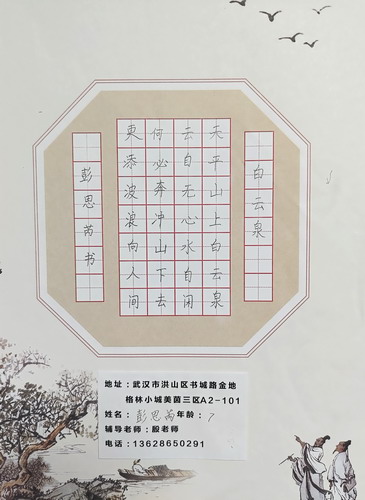 白云泉
天平山上白云泉
云自无心水自闲
何必奔冲山下去
更添波浪向人间
彭思芮书
地址：武汉市洪山区书城路金地
格林小城美茵三区A2-101
姓名：彭思芮年龄：7
辅导老师：殷老师
电话：13628650291